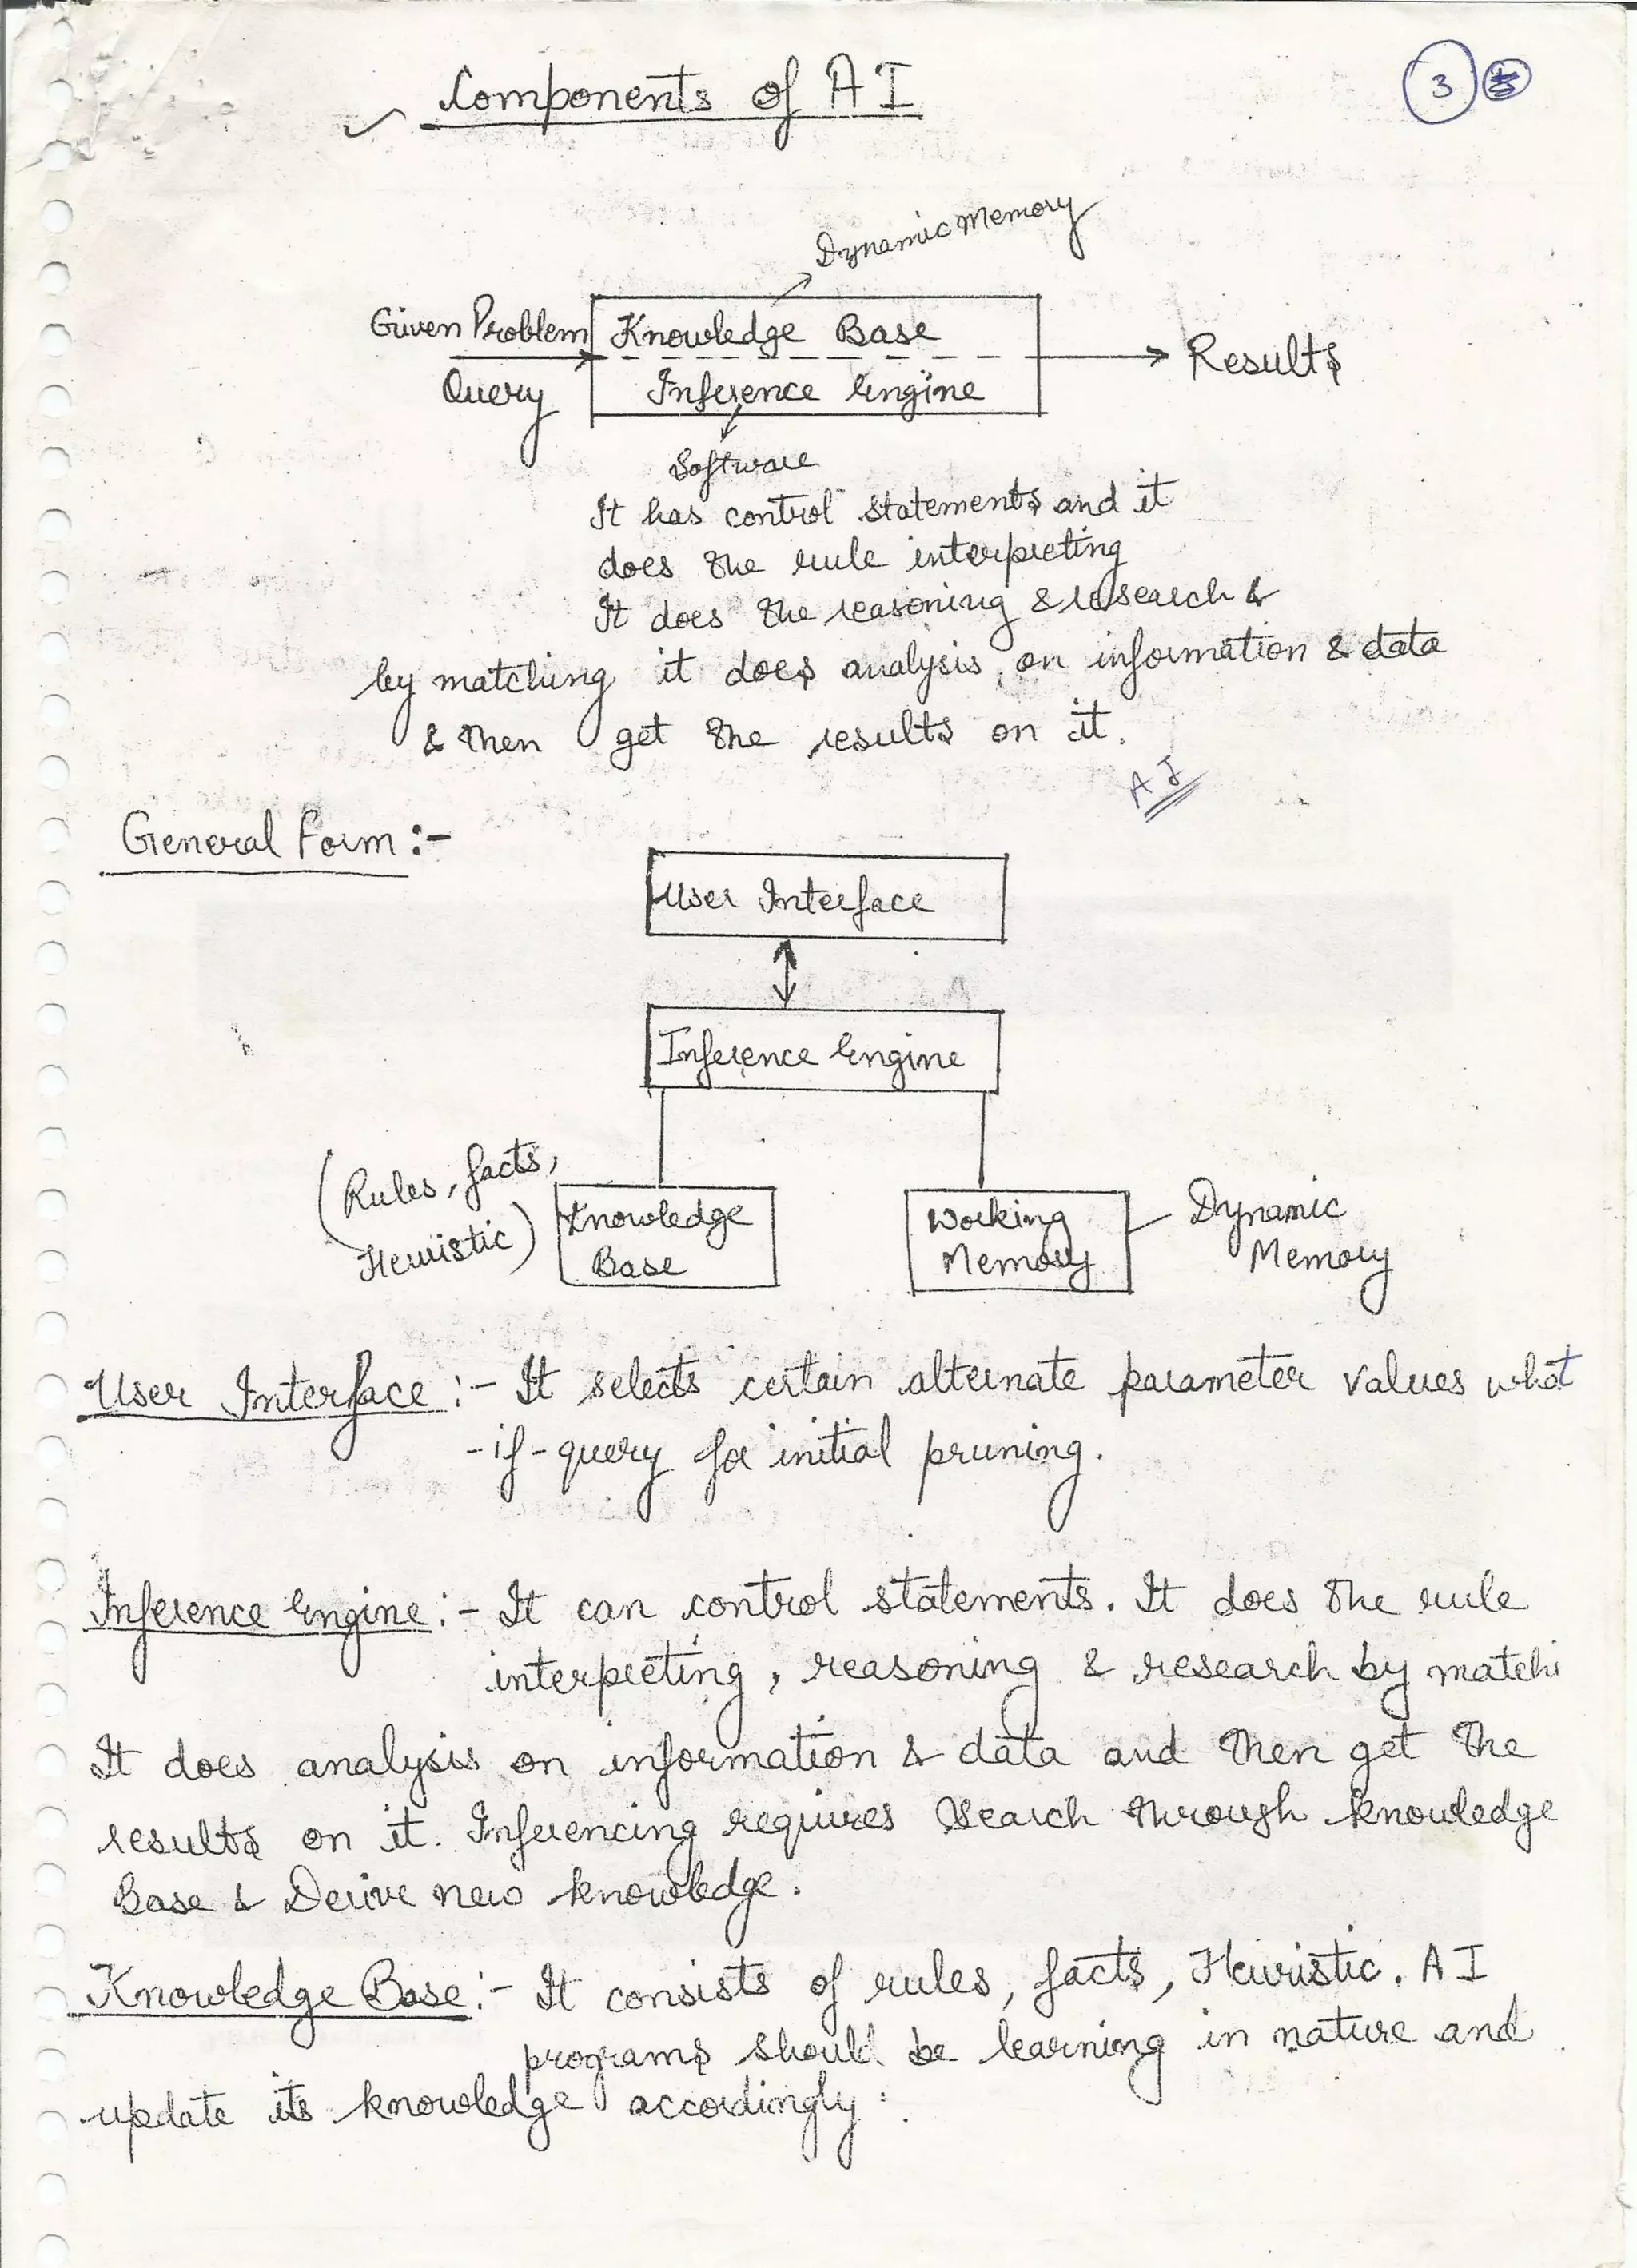 Components of AI
3
Dynamic Memory
Given Problem
Knowledge Base
Results
Query
Inference Engine
Software
It has control statements and it
does the rule interpreting
It does the reasoning & research &
by matching it does analysis on information & data
& then get the results on it.
AI
General Form :-
User Interface
Inference Engine
(Rules, facts,
Heuristic)
Knowledge
Base
Working
Memory
Dynamic
Memory
User Interface :- It selects certain alternate parameter values what
-if-query for initial pruning.
Inference Engine :- It can control statements. It does the rule
interpreting, reasoning & research by matchi
It does analysis on information & data and then get the
results on it. Inferencing requires search through knowledge
Base & Derive new knowledge.
Knowledge Base :- It consists of rules, facts, Heuristic. AI
programs should be learning in nature and
update its knowledge accordingly.